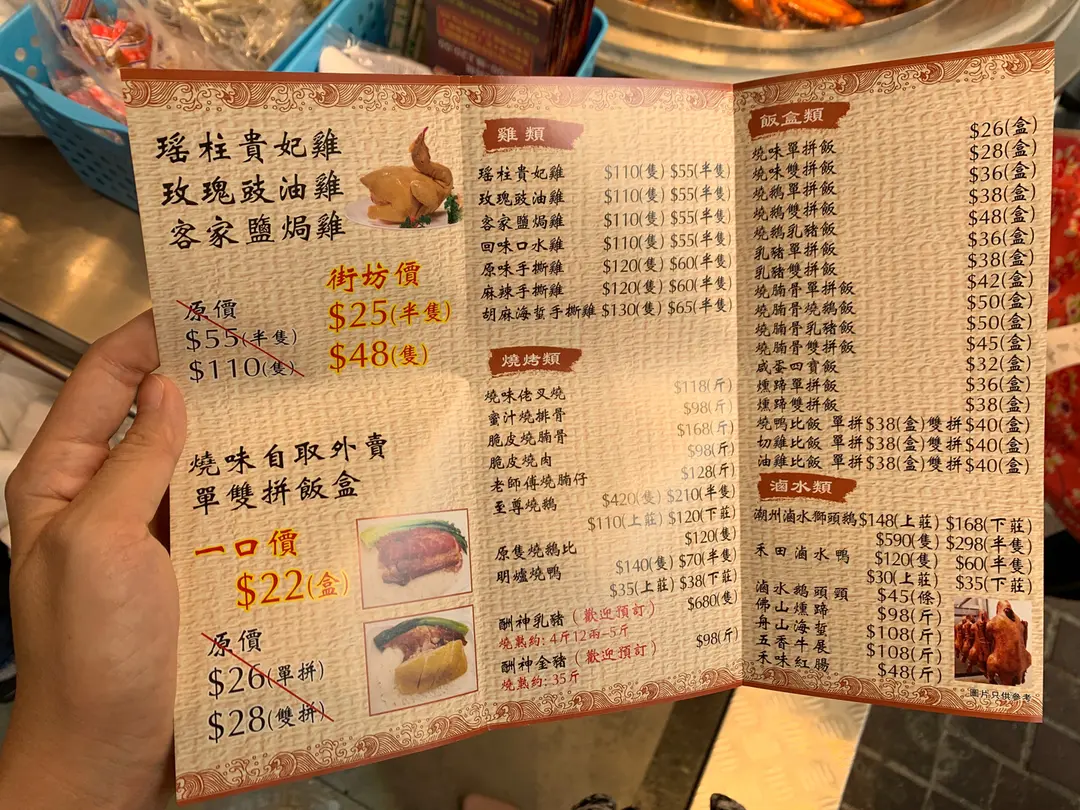 瑤柱貴妃雞
玫瑰豉油雞
客家鹽焗雞
街坊價
$25(半隻)
$48(隻)
原價
$55(半隻)
$110(隻)
燒味自取外賣
單雙拼飯盒
一口價
$22(盒)
原價
$26(單拼)
$28(雙拼)
雞類
瑤柱貴妃雞 $110(隻) $55(半隻)
玫瑰豉油雞 $110(隻) $55(半隻)
客家鹽焗雞 $110(隻) $55(半隻)
回味口水雞 $110(隻) $55(半隻)
原味手撕雞 $120(隻) $60(半隻)
麻辣手撕雞 $120(隻) $60(半隻)
胡麻海蜇手撕雞 $130(隻) $65(半隻)
燒烤類
燒味佬叉燒 $118(斤)
蜜汁燒排骨 $98(斤)
脆皮燒腩骨 $168(斤)
脆皮燒肉 $98(斤)
老師傅燒腩仔 $128(斤)
至尊燒鵝 $420(隻) $210(半隻)
$110(上莊) $120(下莊)
原隻燒鵝比 $120(隻)
明爐燒鴨 $140(隻) $70(半隻)
$35(上莊) $38(下莊)
酬神乳豬(歡迎預訂) $680(隻)
燒熟約: 4斤12兩-5斤
酬神金豬(歡迎預訂) $98(斤)
燒熟約: 35斤
飯盒類
燒味單拼飯 $26(盒)
燒味雙拼飯 $28(盒)
燒鵝單拼飯 $36(盒)
燒鵝雙拼飯 $38(盒)
燒鵝乳豬飯 $48(盒)
乳豬單拼飯 $36(盒)
乳豬雙拼飯 $38(盒)
燒腩骨單拼飯 $42(盒)
燒腩骨燒鵝飯 $50(盒)
燒腩骨乳豬飯 $50(盒)
燒腩骨雙拼飯 $45(盒)
咸蛋四寶飯 $32(盒)
燻蹄單拼飯 $36(盒)
燻蹄雙拼飯 $38(盒)
燒鴨比飯 單拼$38(盒)雙拼$40(盒)
切雞比飯 單拼$38(盒)雙拼$40(盒)
油雞比飯 單拼$38(盒)雙拼$40(盒)
滷水類
潮州滷水獅頭鵝 $148(上莊) $168(下莊)
$590(隻) $298(半隻)
禾田滷水鴨 $120(隻) $60(半隻)
$30(上莊) $35(下莊)
滷水鵝頭頸 $45(條)
佛山燻蹄 $98(斤)
舟山海蜇 $108(斤)
五香牛展 $108(斤)
禾味紅腸 $48(斤)
圖片只供參考